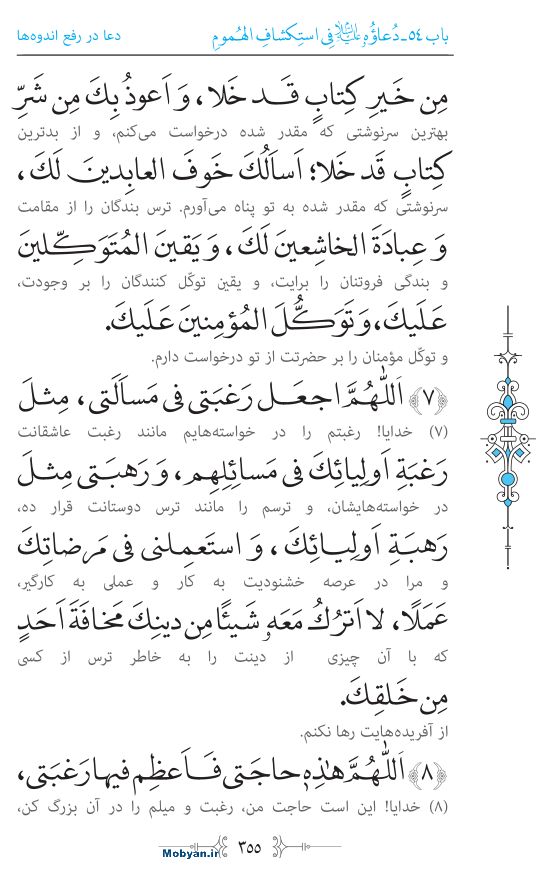 باب ۵۴ـ دُعاؤُهُ عليه السلام فِی استِکشافِ الهُمومِ
دعا در رفع اندوه‌ها
مِن خَیرِ کِتابٍ قَد خَلا، وَ اَعوذُ بِكَ مِن شَرِّ
بهترین سرنوشتی که مقدر شده درخواست می‌کنم، و از بدترین
کِتابٍ قَد خَلا؛ اَساَلُكَ خَوفَ العابِدینَ لَكَ،
سرنوشتی که مقدر شده به تو پناه می‌آورم. ترس بندگان را از مقامت
وَ عِبادَةَ الخاشِعینَ لَكَ، وَ یَقینَ المُتَوَکِّلینَ
و بندگی فروتنان را برایت، و یقین توکّل کنندگان را بر وجودت،
عَلَیكَ، وَ تَوَکُّلَ المُؤمِنینَ عَلَیكَ.
و توکّل مؤمنان را بر حضرتت از تو درخواست دارم.
﴿۷﴾ اَللّٰهُمَّ اجعَل رَغبَتی فی مَساَلَتی، مِثلَ
(۷) خدایا! رغبتم را در خواسته‌هایم مانند رغبت عاشقانت
رَغبَةِ اَولِیائِكَ فی مَسائِلِهِم، وَ رَهبَتی مِثلَ
در خواسته‌هایشان، و ترسم را مانند ترس دوستانت قرار ده،
رَهبَةِ اَولِیائِكَ، وَ استَعمِلنی فی مَرضاتِكَ
و مرا در عرصه خشنودیت به کار و عملی به کارگیر،
عَمَلًا، لا اَترُكُ مَعَهُ شَیئًا مِن دینِكَ مَخافَةَ اَحَدٍ
که با آن چیزی از دینت را به خاطر ترس از کسی
مِن خَلقِكَ.
از آفریده‌هایت رها نکنم.
﴿۸﴾ اَللّٰهُمَّ هٰذِهِ حاجَتی فَاَعظِم فیها رَغبَتی،
(۸) خدایا! این است حاجت من، رغبت و میلم را در آن بزرگ کن،
۳۵۵
Mobyan.ir